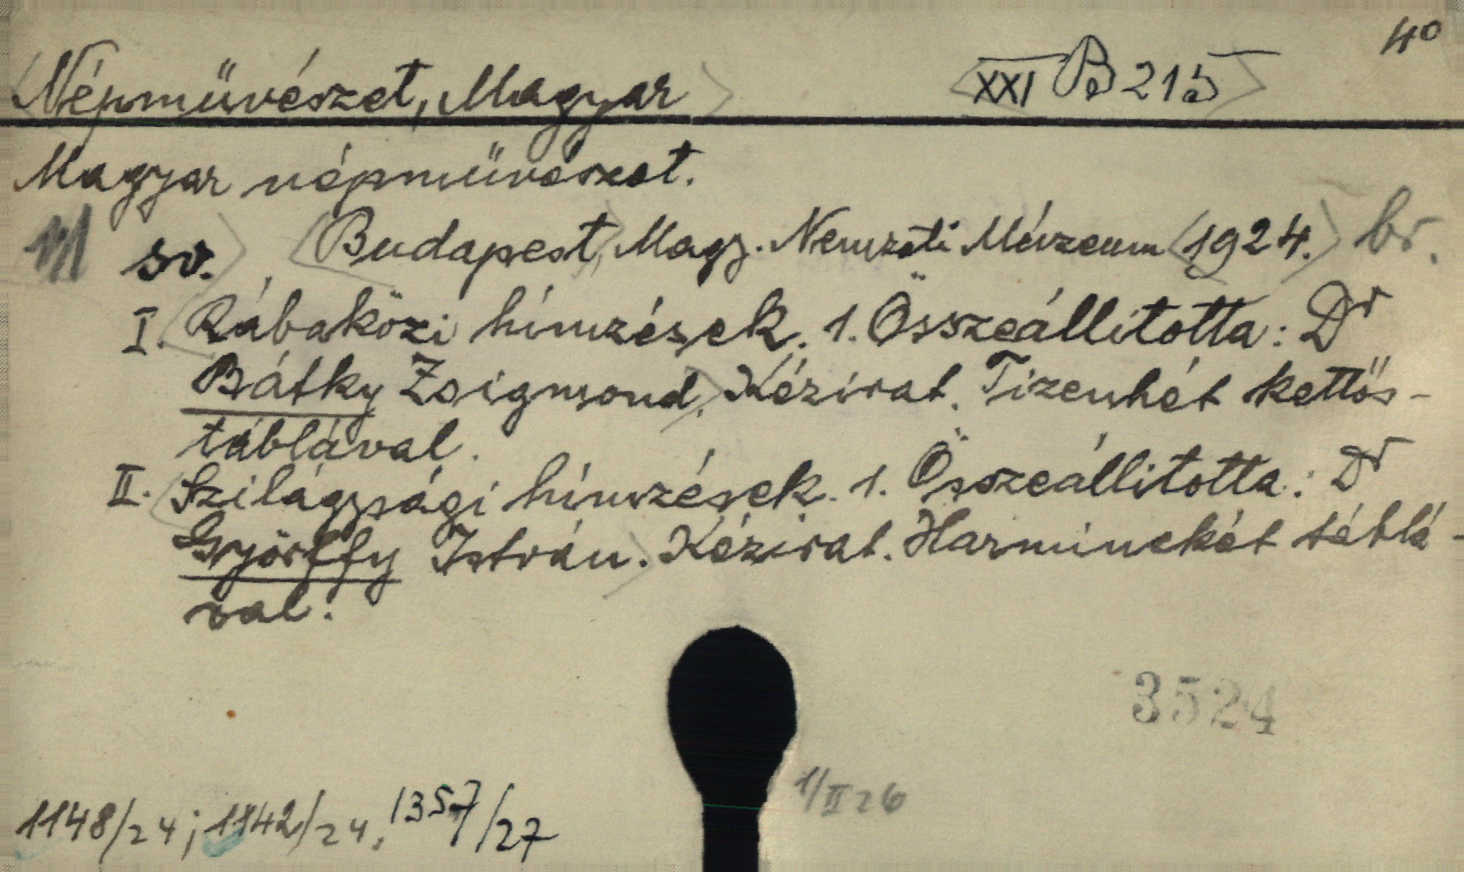 4°
Népművészet, Magyar XXI B 215
Magyar népművészet.
sv. Budapest, Magy. Nemzeti Múzeum 1924. br.
I. Rábaközi hímzések. 1. Összeállította: Dr
Bátky Zsigmond. Kézirat. Tizenhét kettős-
táblával.
II. Szilágysági hímzések. 1. Összeállította: Dr
Györffy István. Kézirat. Harminckét táblá-
val.
3524
1/II 26
1148/24; 1142/24, 1357/27